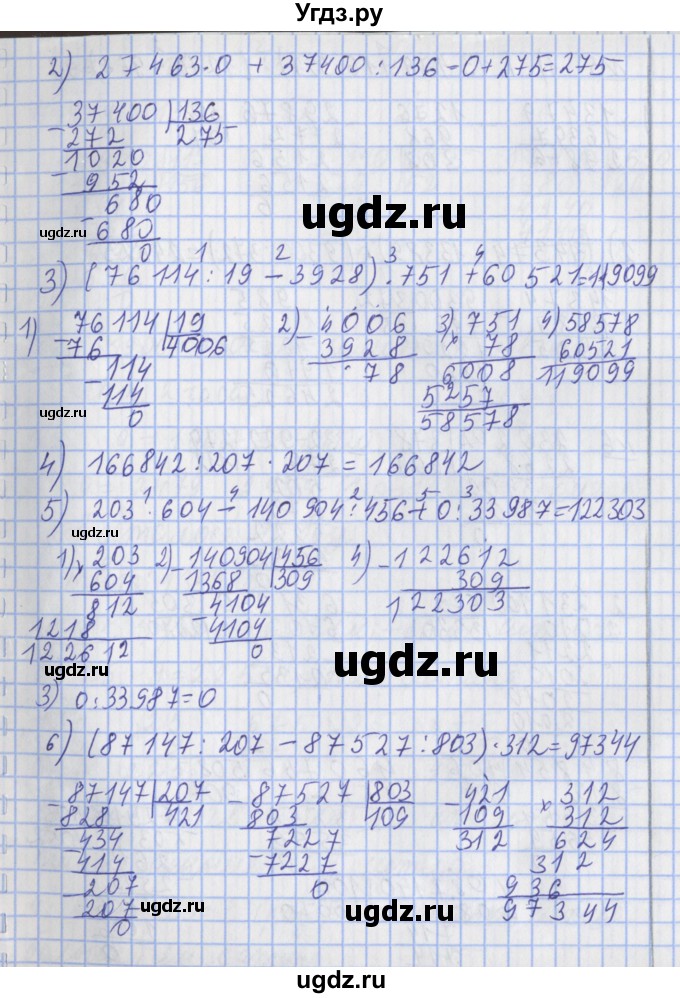 Угдз.ру
2) 27463·0 + 37400:136-0+275=275
37400 136
272 275
1020
952
680
680
0
угдз.ru
ugdz.ru
3) (76114:19-3928)·751+60521=119099
1 2 3 4
1) 76114 19 2) 4006 3) 751 4) 58578
76 4006 3928 78 60521
114 78 6008 119099
114 5257
0 58578
ugdz.ru
4) 166842:207·207=166842
5) 203·604-140904:456+0:33987=122303
1 4 2 5 3
ugdz.ru
1) 203 2) 140904 456 4) 122612
604 1368 309 309
812 4104 122303
1218 4104
122612 0
ugdz.ru
ugdz.ru
3) 0:33987=0
6) (87147:207-87527:803)·312=97344
87147 207 87527 803 421 312
828 421 803 109 109 312
434 7227 312 624
414 7227 312
207 0 936
207 97344
0
ugdz.ru
ugdz.ru
ugdz.ru